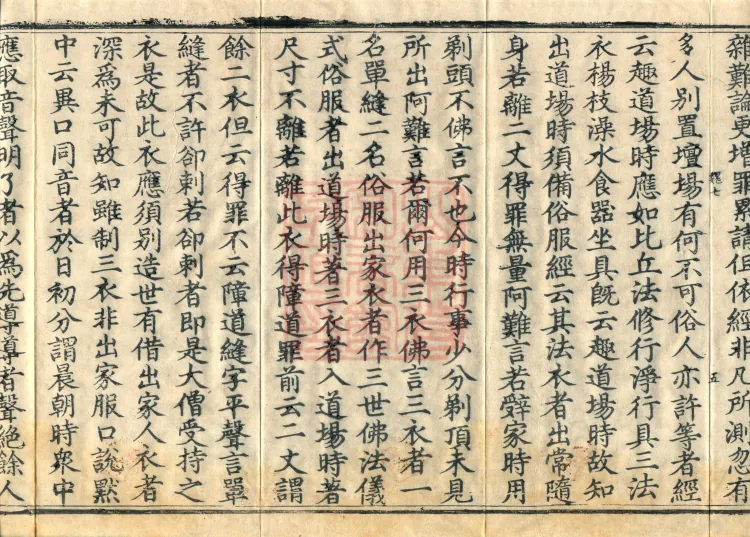 雜難諭更増罪累諸但依經非凡所測忽有
多人別置壇場有何不可俗人亦許等者經
云趣道場時應如比丘法修行淨行具三法
衣楊枝澡水食器坐具旣云趣道場時故知
出道場時須備俗服經云其法衣者出常隨
身若離二丈得罪無量阿難言若辤家時用
剃頭不佛言不也今時行事少分剃頂未見
所出阿難言若爾何用三衣佛言三衣者一
名單縫二名俗服出家衣者作三世佛法儀
式俗服者出道場時著三衣者入道場時著
尺寸不離若離此衣得障道罪前云二丈謂
餘二衣但云得罪不云障道縫字平聲言單
縫者不許卻刺若卻刺者即是大僧受持之
衣是故此衣應須別造世有借出家人衣者
深爲未可故知雖制三衣非出家服口說默
中云異口同音者於日初分謂晨朝時衆中
應取音聲明了者以爲先導導者聲絕餘人
五